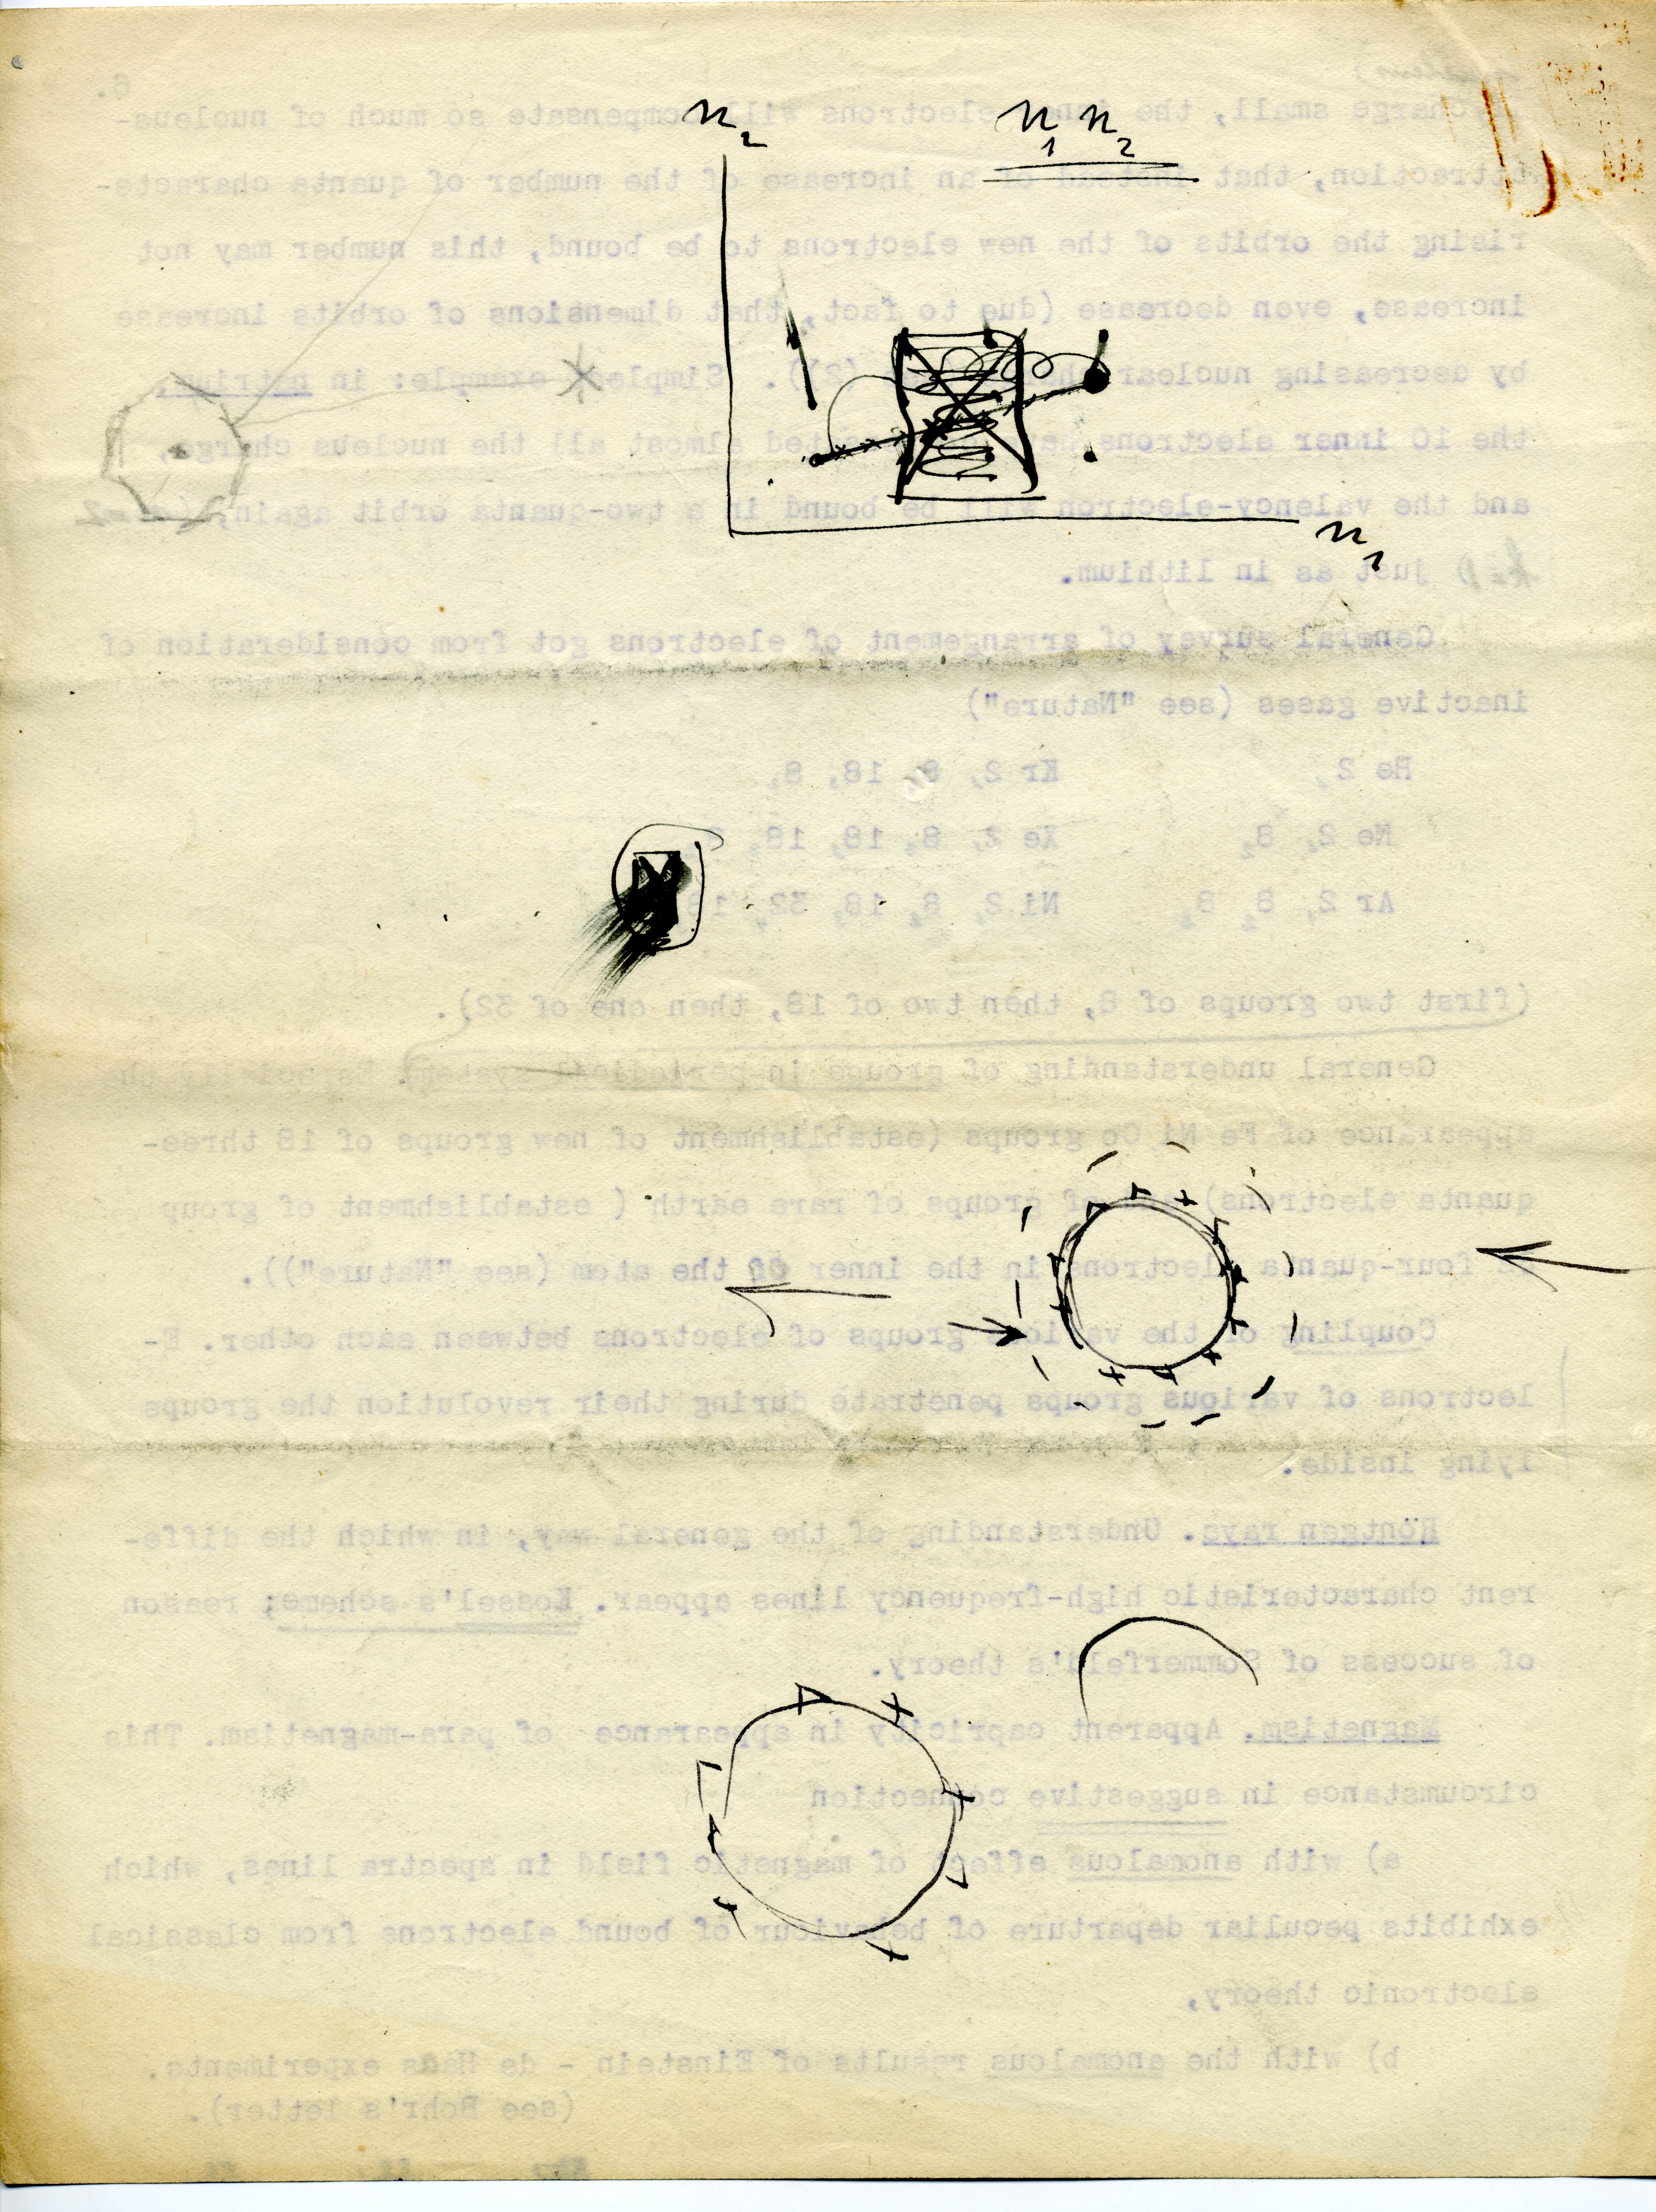 6.
n₂
n₁ n₂
charge small, the inner electrons will compensate so much of nucleus-
attraction, that instead of an increase of the number of quanta characte-
rising the orbits of the new electrons to be bound, this number may not
increase, even decrease (due to fact, that dimensions of orbits increase
by decreasing nuclear (2). Simplest example: in natrium,
the 10 inner electrons almost all the nucleus charge,
and the valency-electron will be bound in a two-quanta orbit again, (n=2
n₁
k=1) just as in lithium.
General survey of arrangement of electrons got from consideration of
inactive gases (see "Nature")
He 2, Kr 2, 8, 18, 8,
Ne 2, 8, Xe 2, 8, 18, 18,
Ar 2, 8, 8, Ni 2, 8, 18, 32,
(first two groups of 8, then two of 18, then one of 32).
General understanding of groups in periodical system) Especially the
appearance of Fe Ni Co groups (establishment of new groups of 18 three-
quanta electrons) of groups of rare earth ( establishment of group
of four-quanta electrons in the inner of the atom (see "Nature")).
Coupling of the various groups of electrons between each other. E-
lectrons of various groups penetrate during their revolution the groups
lying inside.
Röntgen rays. Understanding of the general way, in which the diffe-
rent characteristic high-frequency lines appear. Kossel's scheme; reason
of success of Sommerfeld's theory.
Magnetism. Apparent capricity in appearance of para-magnetism. This
circumstance in suggestive connection
a) with anomalous effect of magnetic field in spectra lines, which
exhibits peculiar departure of behaviour of bound electrons from classical
electronic theory,
b) with the anomalous results of Einstein - de Haas experiments.
(see Bohr's letter).